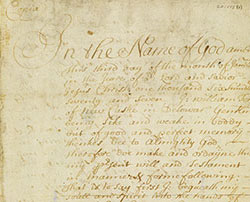 In the Name of God amen
this third day of the month of
in the yeare of or Lord and Savior
Jesus Christ one thousand Six hund
seventy and seven I William
of New Castle in Delowar
being sike and weake in boddy
but of good and perfect memory
thankes bee to Almighty God
therefore doe make and ordayne th
my p'sent will and testament
manner & forme following
that is to say first I bequeath my
soule and spirit into the hands of